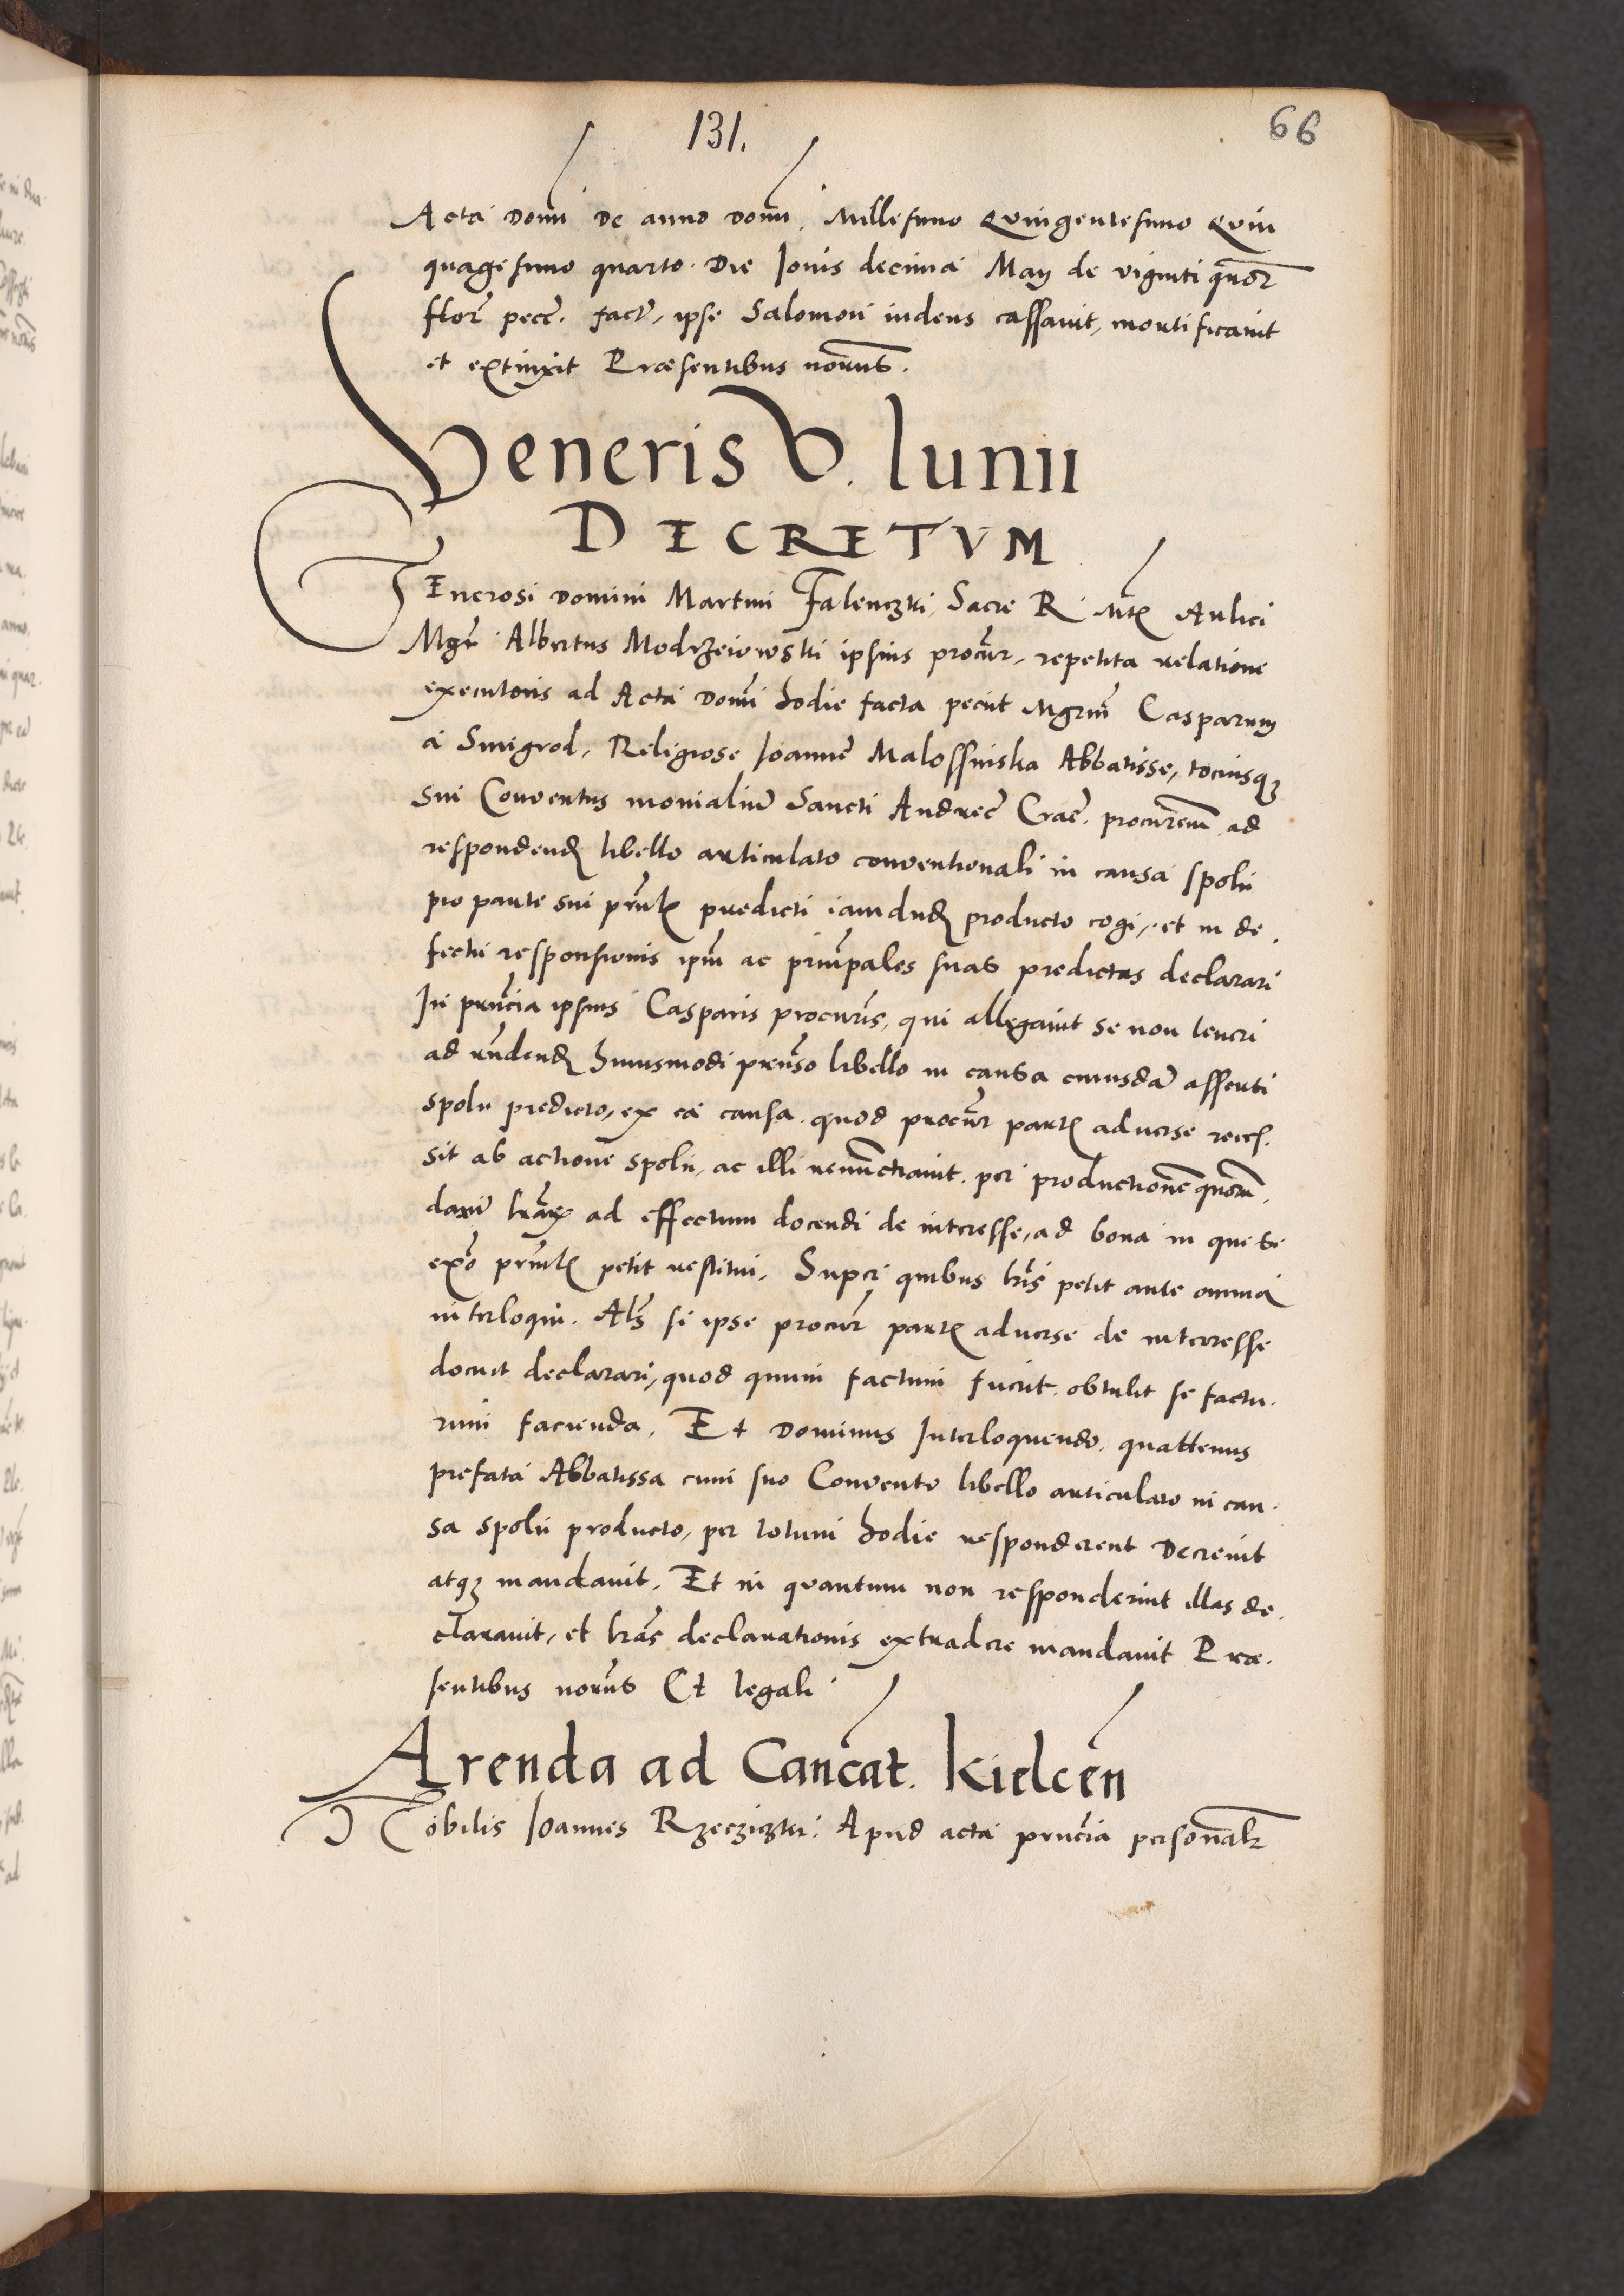 131.
66
Acta Domi De anno Domi. Millesimo Quingentesimo Quin
quagesimo quarto. Die Iovis decima Maij de viginti quor
flor pecc. fact, ipse Salomon iudeus cassavit, mortificavit
et extinxit Præsentibus noruts.
Veneris V. Iunii
DECRETVM
GEnerosi Domini Martini Falenczki, Sacre R. Mtis Aulici
Mgr Albertus Modrzeiowski ipsius procur, repetita relatione
executoris ad Acta Domi hodie facta peciit Mgrm Casparum
a Smigrod, Religiose Ioanne Malossinska Abbatisse, tociusq3
sui Conventus monialiu Sancti Andree Crac. procurem ad
respondend libello articulato conventionali in causa spolii
pro parte sui prnlis predicti iamdud producto cogi, et in de.
fectu responsionis ipm ac prinpales suas predictas declarari
In prncia ipsius Casparis procuris, qui allegavit se non teneri
ad rndend huiusmodi prenso libello in causa cuiusda asserti
spolii predicto, ex ea causa quod procur partis adverse reces.
sit ab actione spolii, ac illi renunctiavit. per productione quoru.
dam lrarx ad effectum docendi de interesse, ad bona in que se
exo prnlis petit restitui. Super quibus lris petit ante omnia
interloqui. Als si ipse procur partis adverse de interesse
docuit declarari, quod quum factum fuerit. obtulit se factu.
rum facienda. Et Dominus Interloquendo. quattenus
prefata Abbatissa cum suo Convento libello articulato in cau.
sa spolii producto, per totum hodie responderent Decrevit
atq3 mandavit. Et in quantum non responderint illas de.
claravit, et lras declarationis extradere mandavit Præ.
sentibus noruts Et legali
Arenda ad Cancat. Kielcen
Nobilis Ioannes Rzecziczki. Apud acta prncia personalr